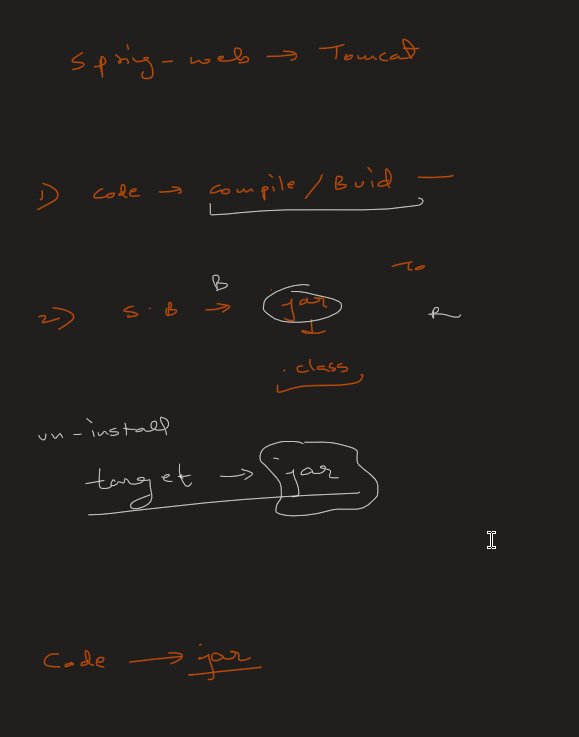 Spring-web → Tomcat
1) Code → Compile / Buid —
To
B
2) S.B → jar
.class
vn-install
target → jar
Code → jar